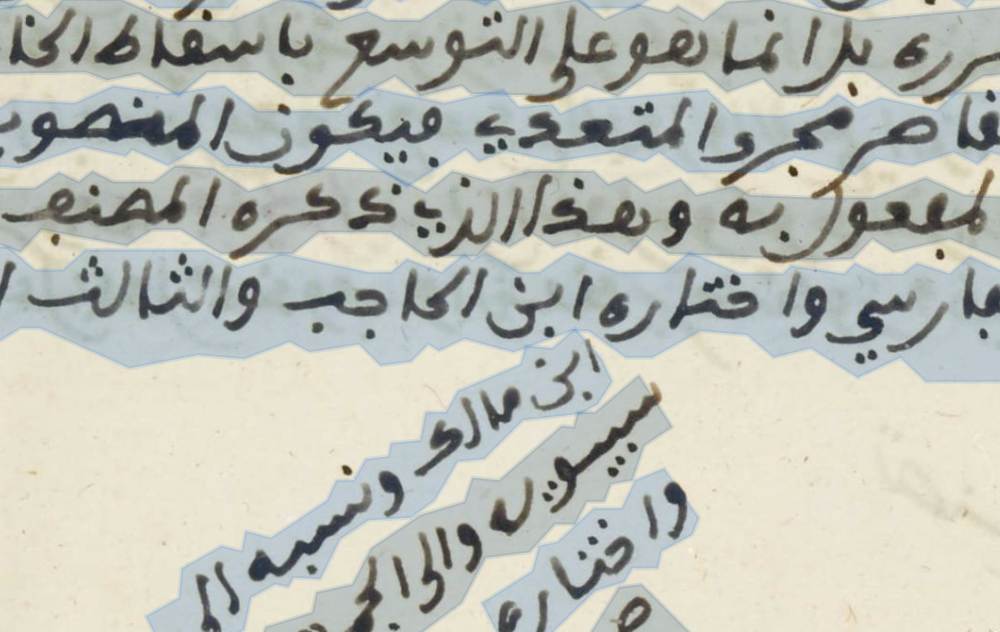 بل انما هو على التوسع باسقاط
مجر والمتعدي فيكون المنصوب
المفعول به وهذا الذي ذكره المصنف
الفارسي واختاره ابن الحاجب والثالث
ابن مالك ونسبه الى
سيبويه والى
واختاره